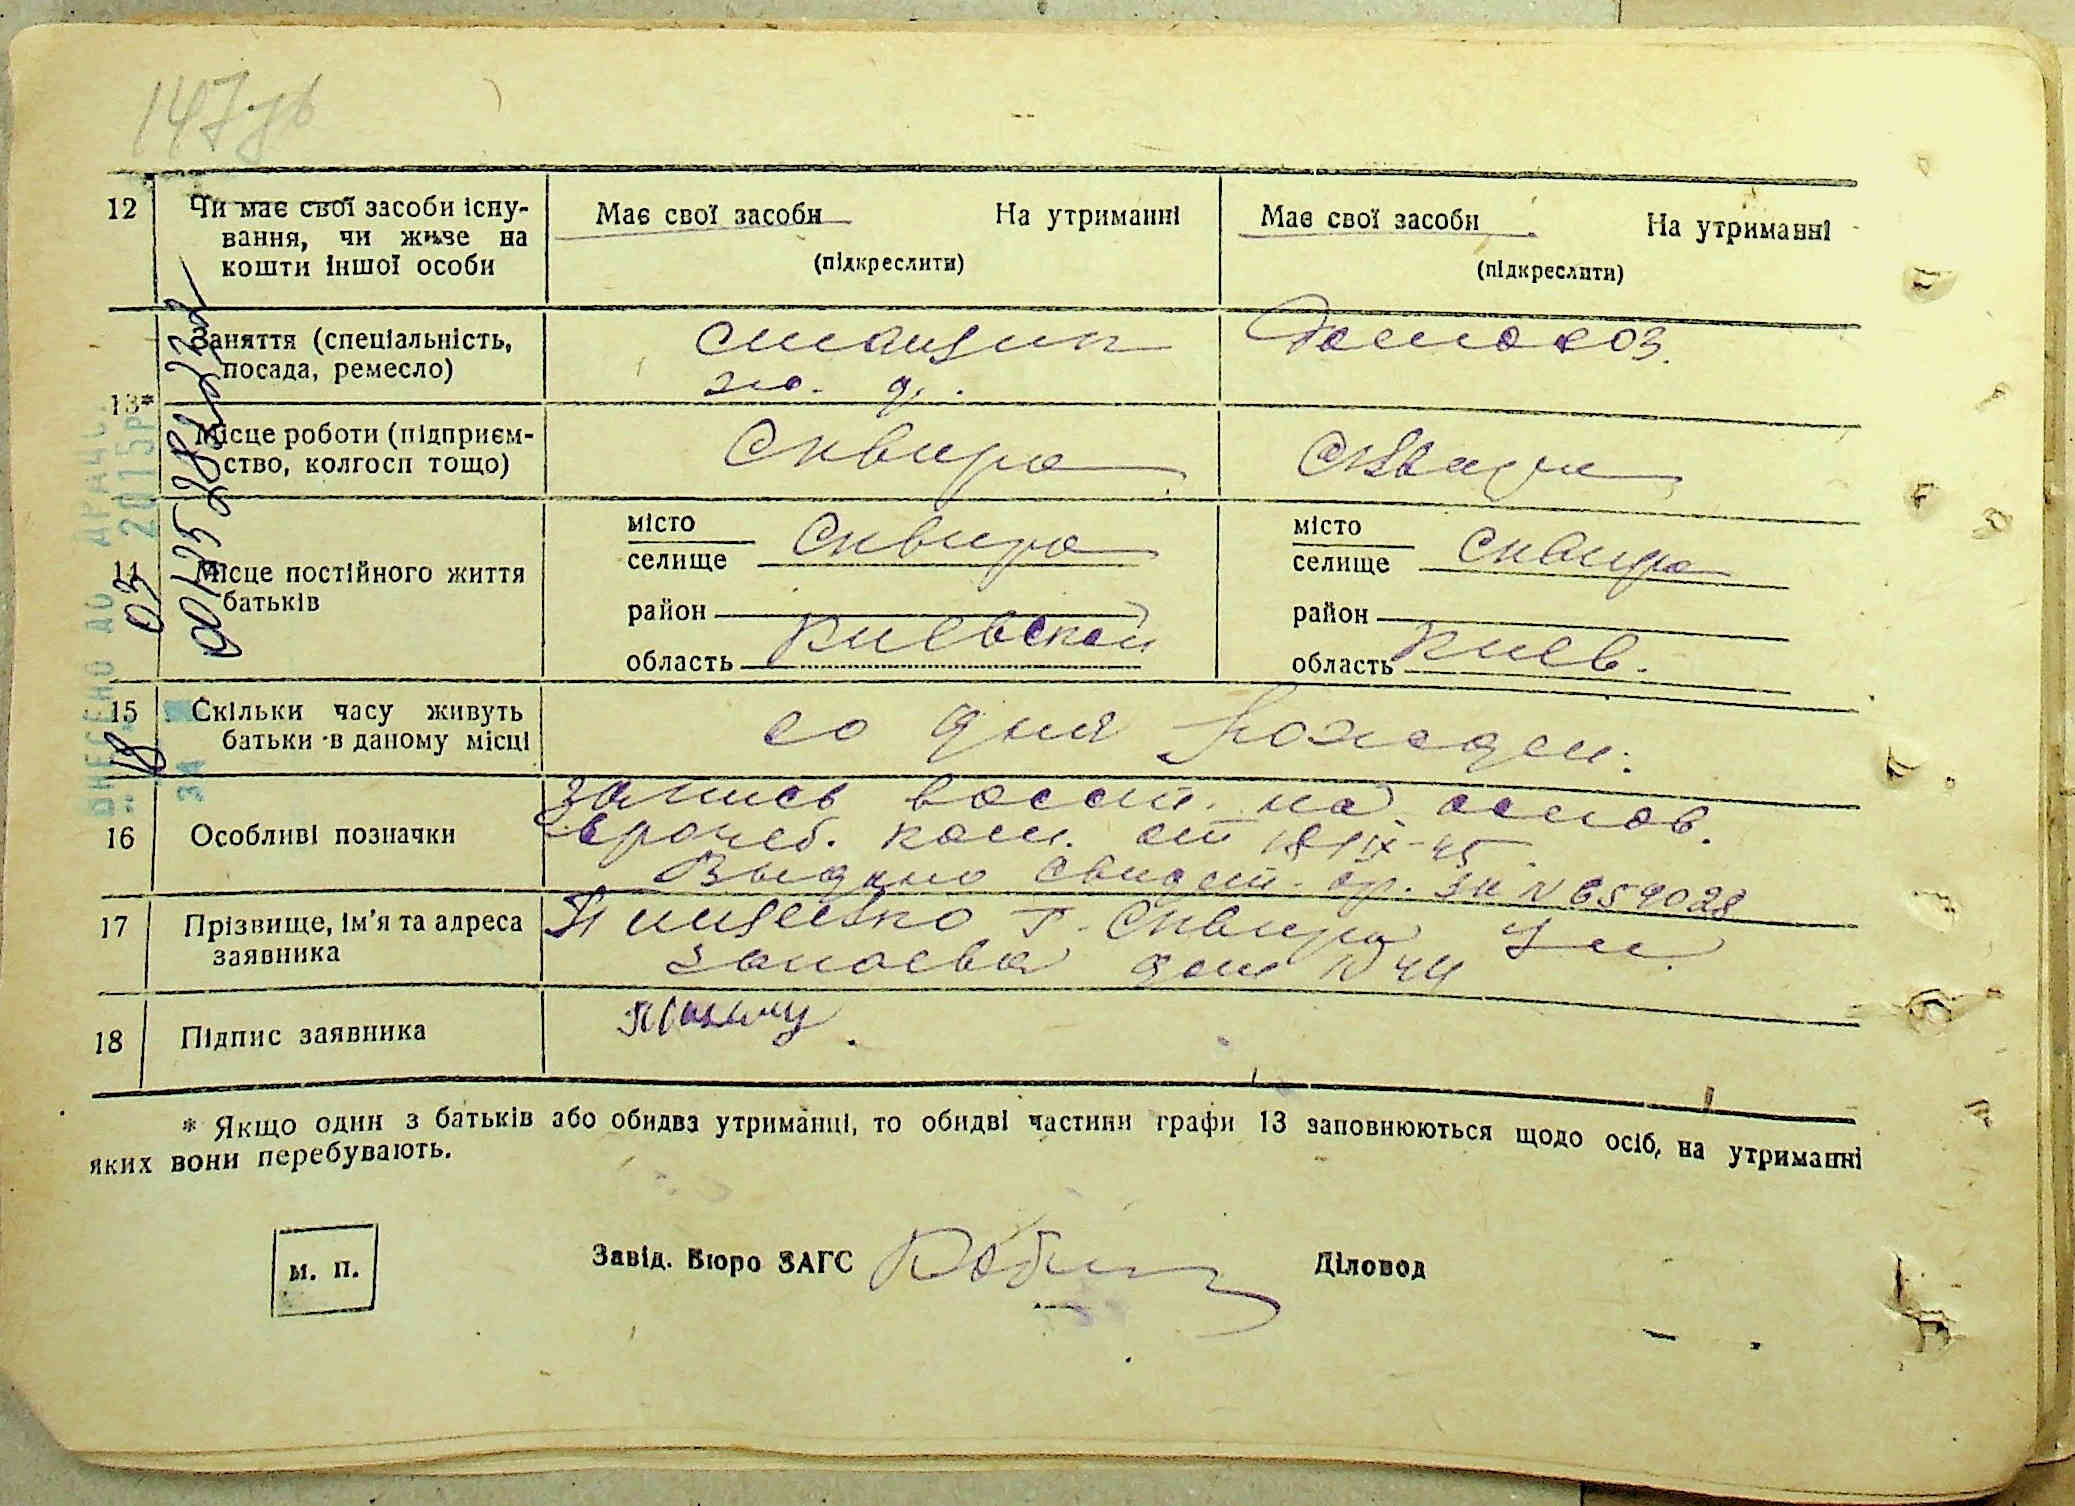 147 зв
12 Чи має свої засоби існу- Має свої засоби На утриманні Має свої засоби На утриманні
вання, чи живе на
кошти іншої особи (підкреслити) (підкреслити)
13* Заняття (спеціальність, Домохоз.
посада, ремесло)
Місце роботи (підприєм- Сквира Сквира
ство, колгосп тощо)
14 Місце постійного життя місто Сквира місто Сквира
батьків селище селище
район район
область Киевской область Киев.
15 Скільки часу живуть со дня рожден.
батьки в даному місці
16 Особливі позначки запись восст. на основ.
врачеб. ком. от 18/IX-45
Выдано свидет. ЗН N 659028
17 Прізвище, ім'я та адреса г. Сквира Ул.
заявника дом N 44
18 Підпис заявника
* Якщо один з батьків або обидва утриманці, то обидві частини графи 13 заповнюються щодо осіб, на утриманні
яких вони перебувають.
М. П. Завід. Бюро ЗАГС Діловод
ВНЕСЕНО ДО ДРАЦС
18 03 2015р
за № 00135